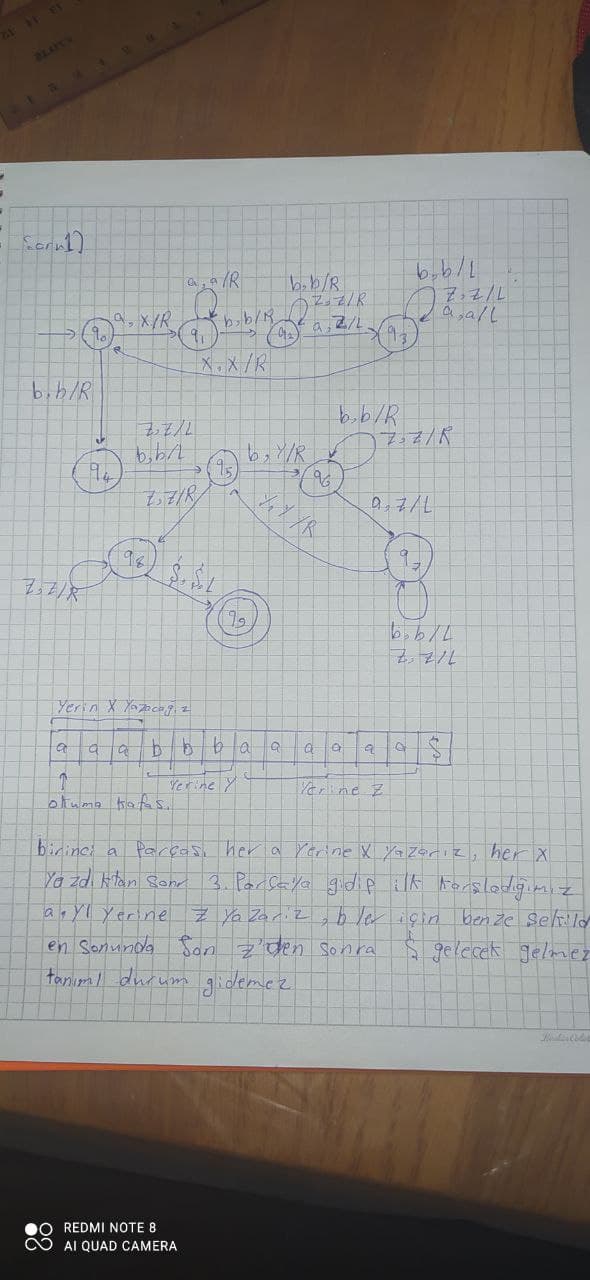 Soru1)
a, a/R
b, b/R
z, z/R
b, b/L
z, z/L
a, a/L
q0
a, X/R
q1
b, b/R
q2
a, Z/L
q3
X, X/R
b, b/R
z, z/L
b, b/L
b, b/R
z, z/R
q4
q5
b, Y/R
q6
z, z/R
Y, Y/R
a, z/L
q8
q7
z, z/R
$, $, L
q9
b, b/L
z, z/L
Yerin X Yazacağız
a a a b b b a a a a a a $
Yerine Y
Yerine Z
okuma kafas,
birinci a Parçası her a Yerine X Yazarız, her X
Yazdıktan sonr 3. Parçaya gidip ilk karşladığımız
a, yı yerine z yazarız, b ler için benze sekild
en sonunda Son z'den sonra $ gelecek gelmez
tanımlı durum gidemez
REDMI NOTE 8
AI QUAD CAMERA